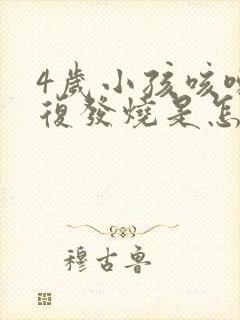 4歲小孩咳嗽
復發燒是怎
穆古魯